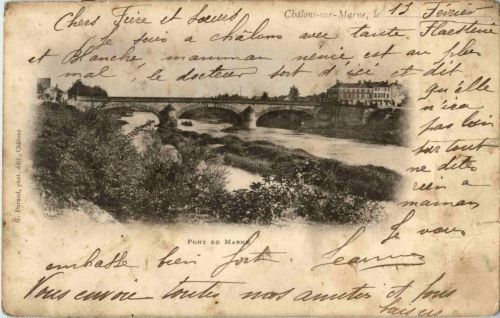 Châlons-sur-Marne, le 13 Février
Chers Frère et Sœurs
Je suis a châlons avec tante
et Blanche mamman nénie est au plus
mal, le docteur sort d'ici et dit
qu'elle
n'ira
pas loin
surtout
ne dite
rien a
maman
Je vous
embrasse bien fort. Jeanne
Vous envoie toutes nos amitiés et bons
baisers
PONT DE MARNE
G. Durand, phot. édit. Châlons